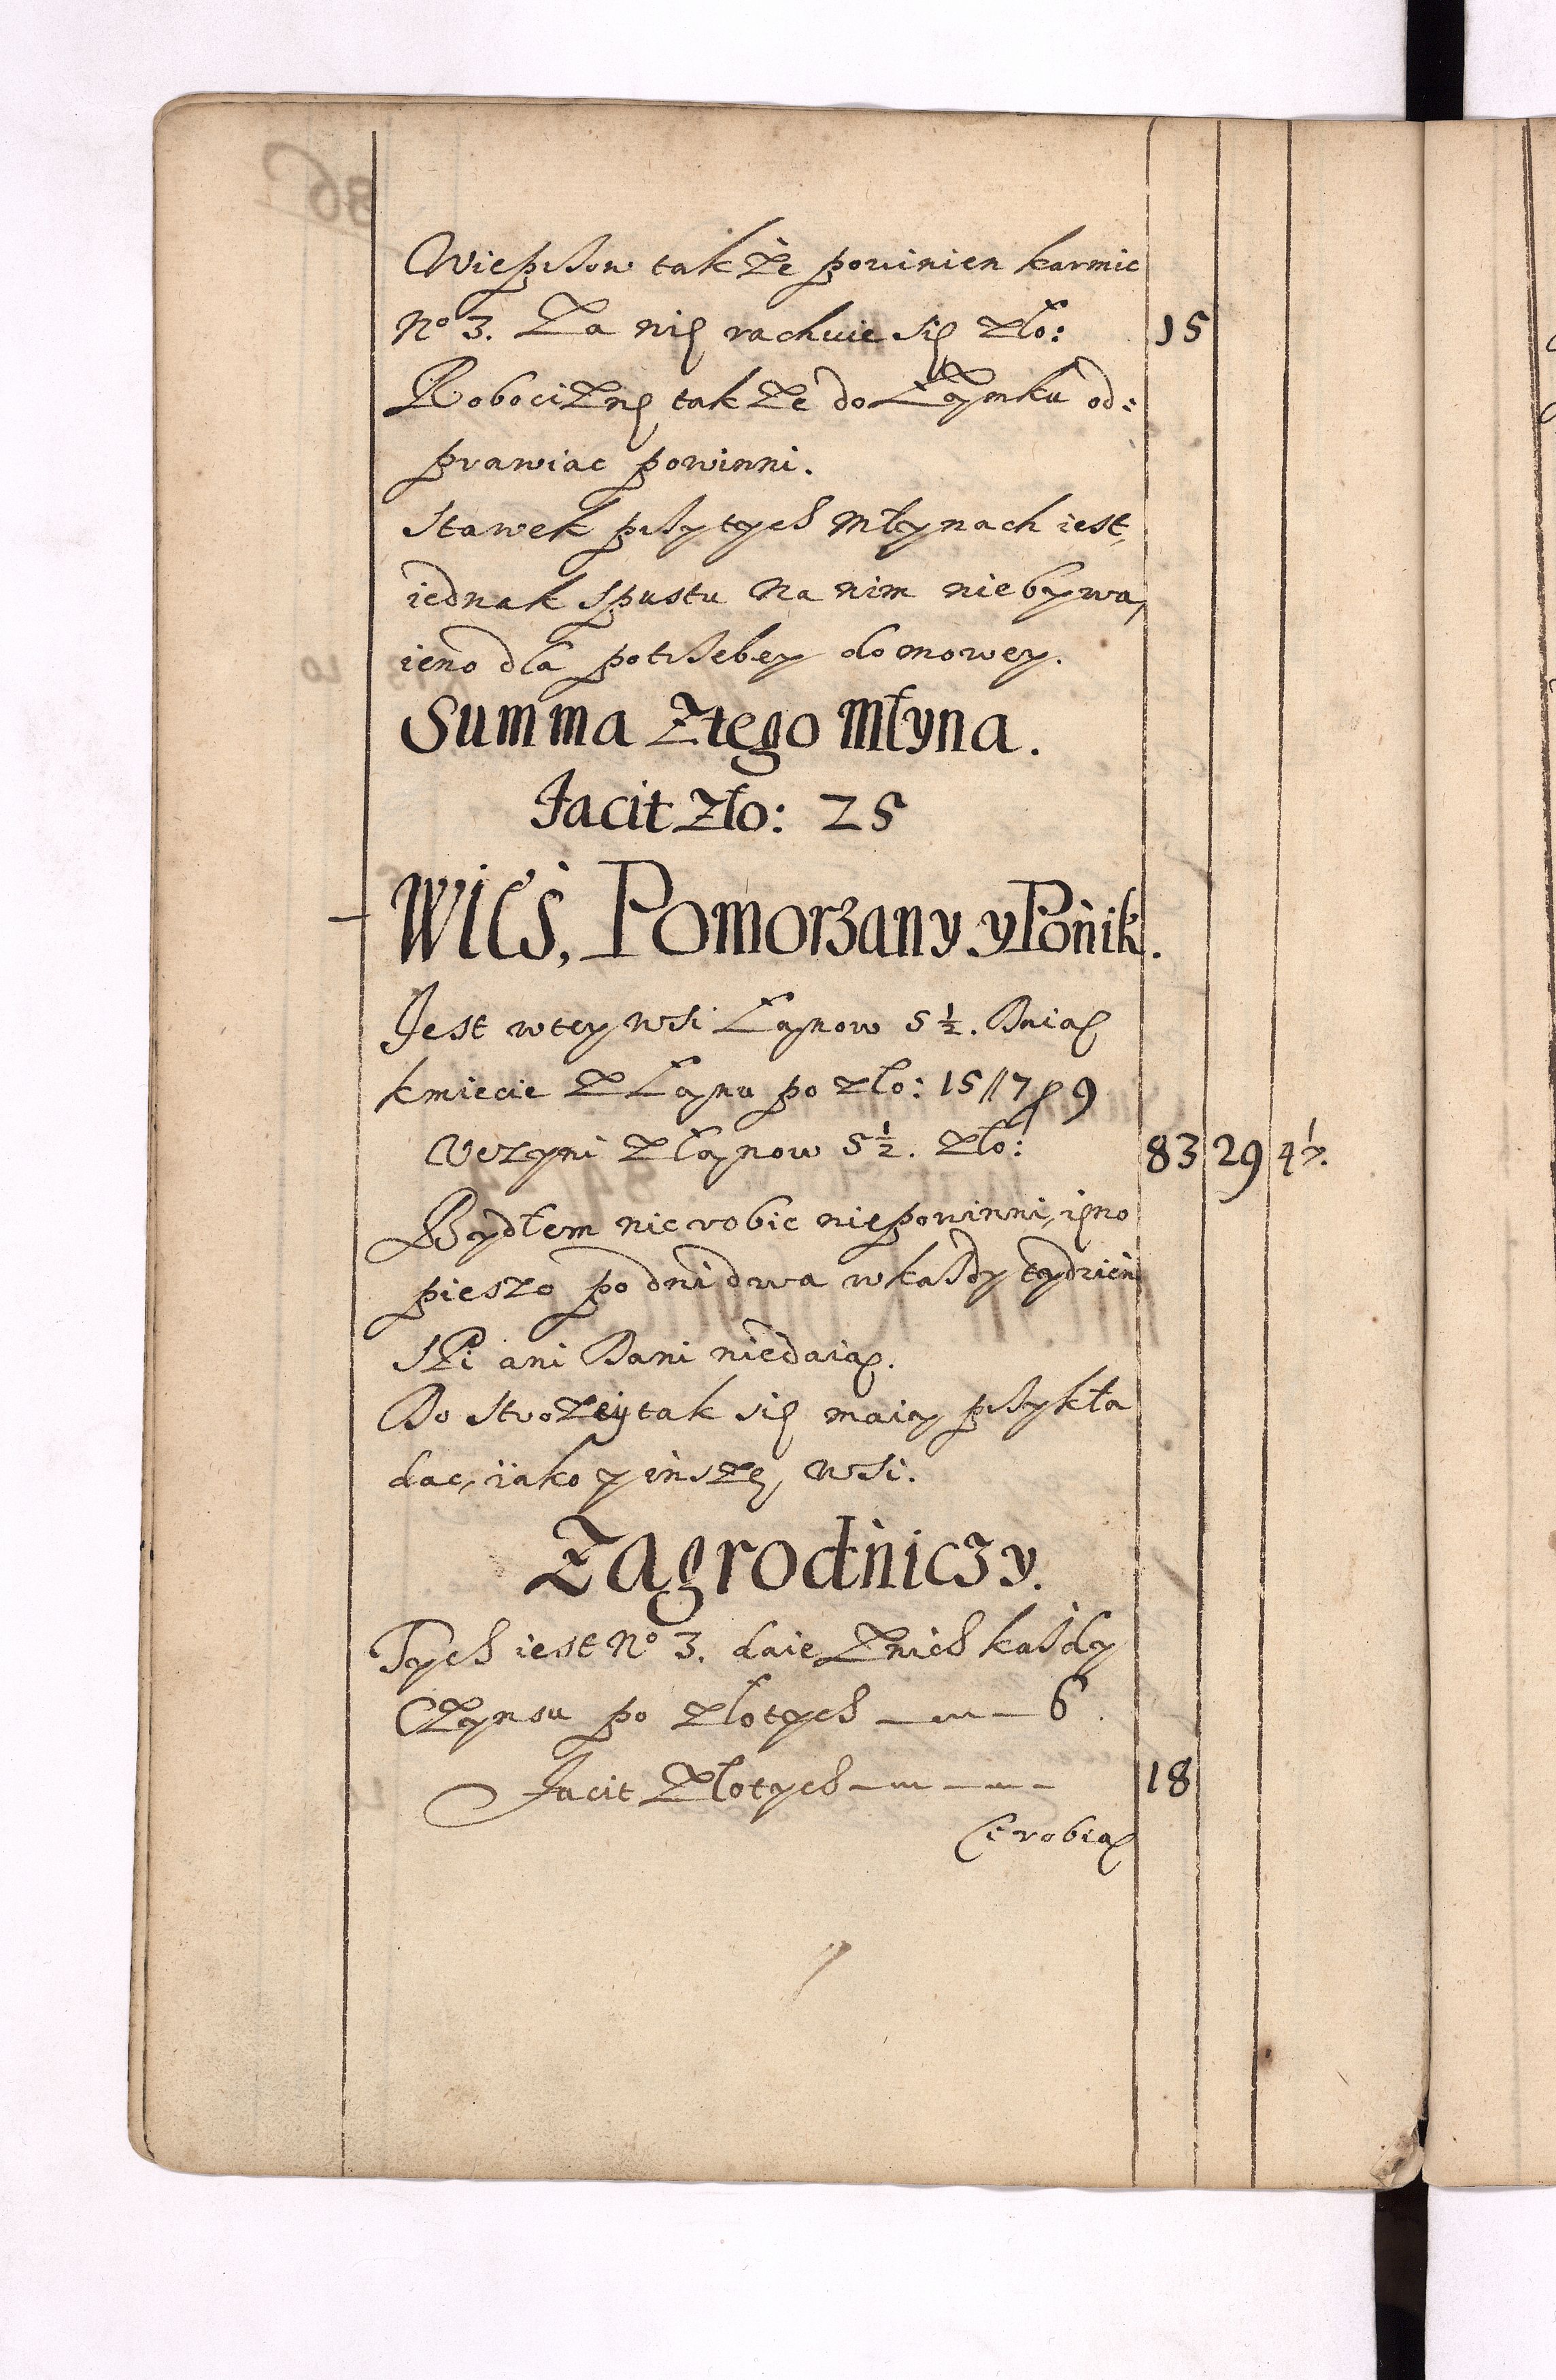 Wieprzow takze powinien karmic
No 3. Za nię rachuie się zło: 15
Robociznę takze do Zamku od:
prawiac powinni.
Stawek przy tych Młynach iest,
iednak spustu na nim niebywa,
ieno dla potrzeby domowey.
Summa z tego Młyna.
Facit zło: 25
Wieś, Pomorzany y Ponik.
Jest w tey wsi Łanow 5½. Daią
kmiecie z Łanu po zło: 15 // 7 ꝑ 9
Uczyni z Łanow 5½. zło: 83 29 4½.
Bydłem nic robic niepowinni, ieno
pieszo po dni dwa w kazdy tydzień
ani Dani niedaią.
Do strozey tak się maią przykła
dac, iako y inszę, wsi.
Zagrodniczy.
Tych iest No 3. daie z nich kazdy
Czynsu po złotych — 6.
Facit Złotych — 18
Ci robią